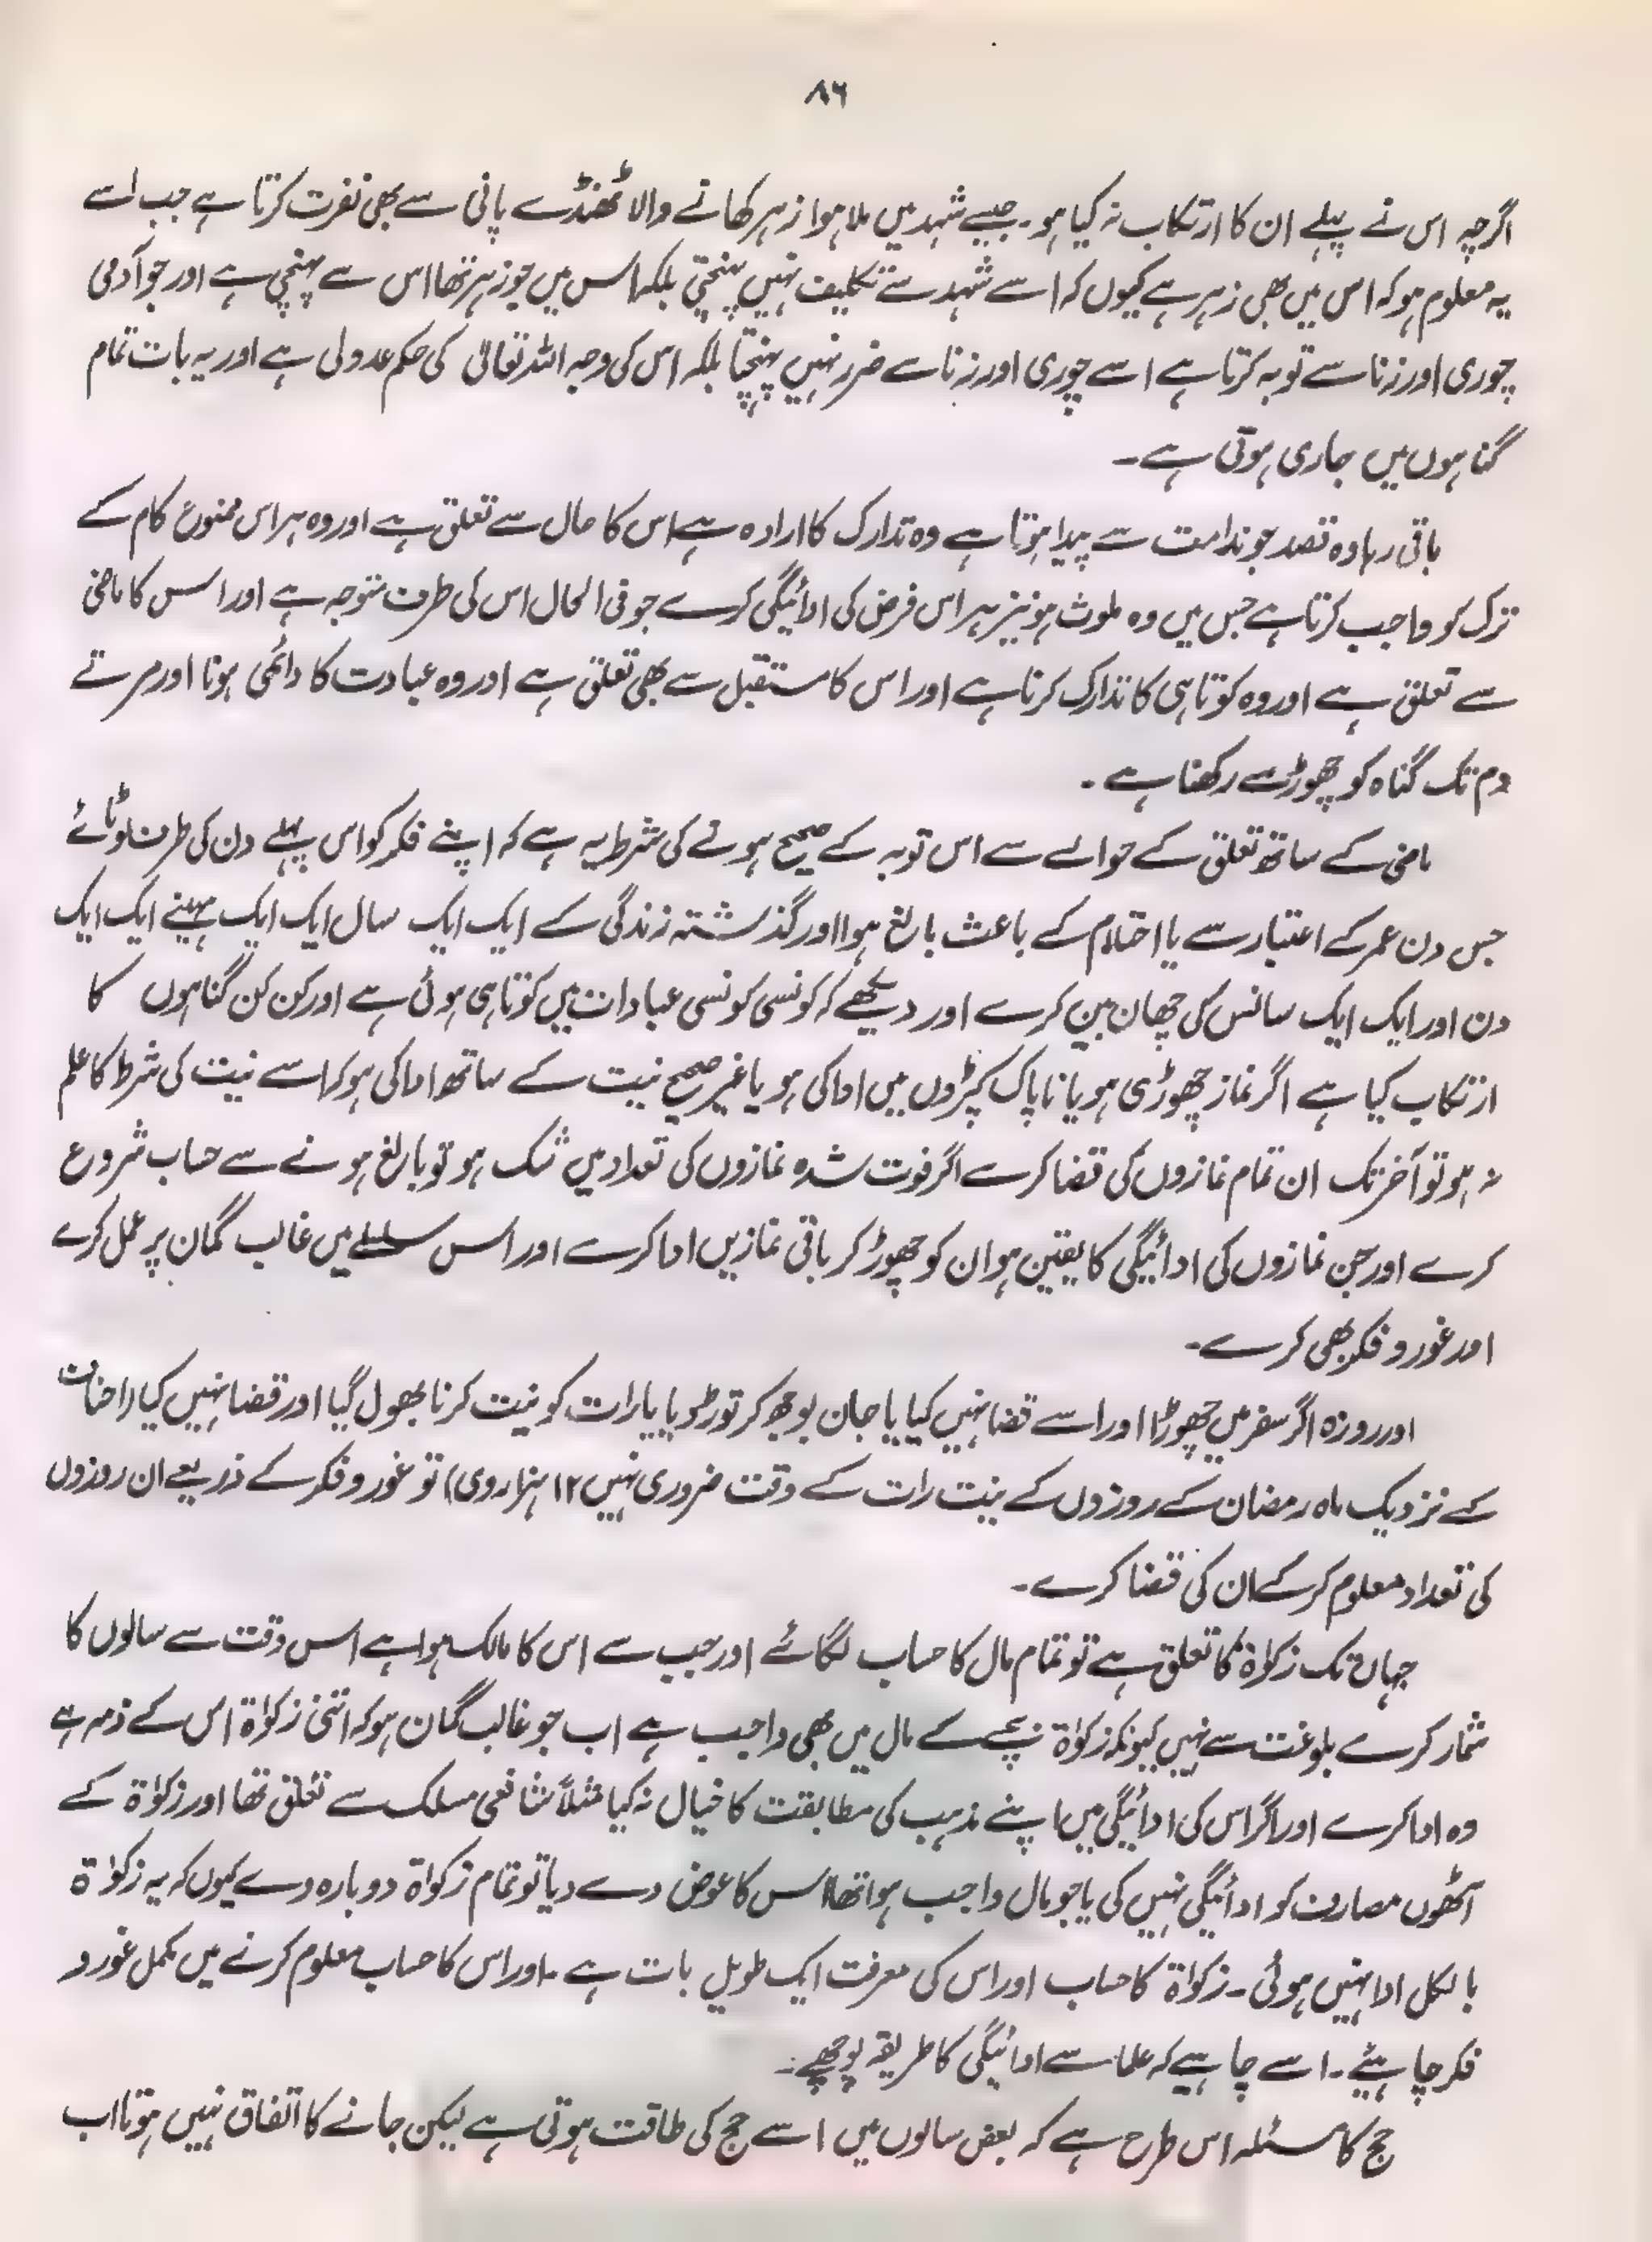 ۸۶
اگرچہ اس نے پہلے ان کا ارتکاب نہ کیا ہو۔ جیسے شہد میں ملا ہوا زہر کھانے والا ٹھنڈے پانی سے بھی نفرت کرتا ہے جب اسے
یہ معلوم ہو کہ اس میں بھی زہر ہے کیوں کہ اسے شہد سے تکلیف نہیں پہنچتی بلکہ اس میں جو زہر تھا اس سے پہنچی ہے اور جو آدمی
چوری اور زنا سے توبہ کرتا ہے اسے چوری اور زنا سے ضرر نہیں پہنچتا بلکہ اس کی وجہ اللہ تعالیٰ کی حکم عدولی ہے اور یہ بات تمام
گناہوں میں جاری ہوتی ہے۔
باقی رہا وہ قصد جو ندامت سے پیدا ہوتا ہے وہ تدارک کا ارادہ ہے اس کا حال سے تعلق ہے اور وہ ہر اس ممنوع کام کے
ترک کو واجب کرتا ہے جس میں وہ ملوث ہو نیز ہر اس فرض کی ادائیگی کرے جو فی الحال اس کی طرف متوجہ ہے اور اس کا ماضی
سے تعلق ہے اور وہ کوتاہی کا تدارک کرتا ہے اور اس کا مستقبل سے بھی تعلق ہے اور وہ عبادت کا دائمی ہونا اور مرتے
دم تک گناہ کو چھوڑے رکھنا ہے۔
ماضی کے ساتھ تعلق کے حوالے سے اس توبہ کے صحیح ہونے کی شرط یہ ہے کہ اپنے فکر کو اس پہلے دن کی طرف لوٹائے
جس دن عمر کے اعتبار سے یا احتلام کے باعث بالغ ہوا اور گذشتہ زندگی کے ایک ایک سال ایک ایک مہینے ایک ایک
دن اور ایک ایک سانس کی چھان بین کرے اور دیکھے کہ کونسی کونسی عبادات میں کوتاہی ہوئی ہے اور کن کن گناہوں کا
ارتکاب کیا ہے اگر نماز چھوڑی ہو یا ناپاک کپڑوں میں ادا کی ہو یا غیر صحیح نیت کے ساتھ ادا کی ہو کہ اسے نیت کی شرط کا علم
نہ ہو تو آخر تک ان تمام نمازوں کی قضا کرے اگر فوت شدہ نمازوں کی تعداد میں شک ہو تو بالغ ہونے سے حساب شروع
کرے اور جن نمازوں کی ادائیگی کا یقین ہو ان کو چھوڑ کر باقی نمازیں ادا کرے اور اس سلسلے میں غالب گمان پر عمل کرے
اور غور و فکر بھی کرے۔
اور روزہ اگر سفر میں چھوڑا اور اسے قضا نہیں کیا یا جان بوجھ کر توڑ دیا یا رات کو نیت کرنا بھول گیا اور قضا نہیں کیا (احناف
کے نزدیک ماہ رمضان کے روزوں کے نیت رات کے وقت ضروری نہیں ۱۲ ہزاروی) تو غور و فکر کے ذریعے ان روزوں
کی تعداد معلوم کر کے ان کی قضا کرے۔
جہاں تک زکوٰۃ کا تعلق ہے تو تمام مال کا حساب لگائے اور جب سے اس کا مالک ہوا ہے اس وقت سے سالوں کا
شمار کرے بلوغت سے نہیں کیونکہ زکوٰۃ بچے کے مال میں بھی واجب ہے اب جو غالب گمان ہو کہ اتنی زکوٰۃ اس کے ذمہ ہے
وہ ادا کرے اور اگر اس کی ادائیگی میں اپنے مذہب کی مطابقت کا خیال نہ کیا مثلاً شافعی مسلک سے تعلق تھا اور زکوٰۃ کے
آٹھوں مصارف کو ادائیگی نہیں کی یا جو مال واجب ہوا تھا اس کا عوض دے دیا تو تمام زکواۃ دوبارہ دے کیوں کہ یہ زکوٰۃ
بالکل ادا نہیں ہوئی۔ زکواۃ کا حساب اور اس کی معرفت ایک طویل بات ہے۔ اور اس کا حساب معلوم کرنے میں مکمل غور و
فکر چاہیئے۔ اسے چاہیے کہ علما سے ادائیگی کا طریقہ پوچھے۔
حج کا مسئلہ اس طرح ہے کہ بعض سالوں میں اسے حج کی طاقت ہوتی ہے لیکن جانے کا اتفاق نہیں ہوتا اب